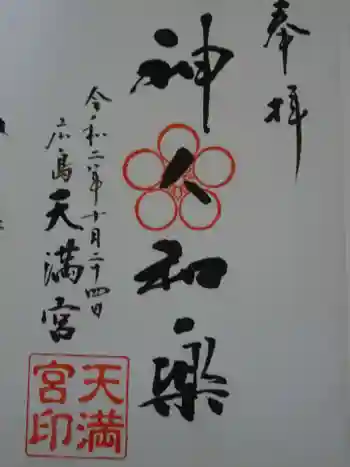 奉拝
神人和楽
令和二年十月二十四日
広島天満宮
天満宮印